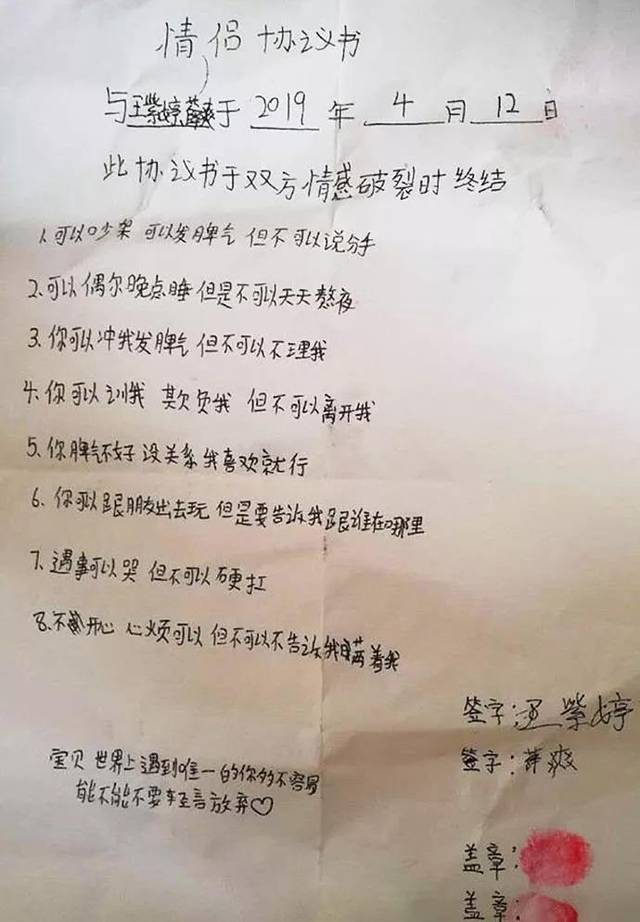 情侣协议书
与王紫婷薛爽于 2019 年 4 月 12 日
此协议书于双方情感破裂时终结
1.可以吵架 可以发脾气 但不可以说分手
2.可以偶尔晚点睡 但是不可以天天熬夜
3.你可以冲我发脾气 但不可以不理我
4.你可以训我 欺负我 但不可以离开我
5.你脾气不好 没关系 我喜欢就行
6.你可以跟朋友出去玩 但是要告诉我跟谁在哪里
7.遇事可以哭 但不可以硬扛
8.不开心 心烦可以 但不可以不告诉我瞒着我
签字:王紫婷
签字:薛爽
宝贝 世界上遇到唯一的你多不容易
能不能不要轻言放弃♡
盖章:
盖章: